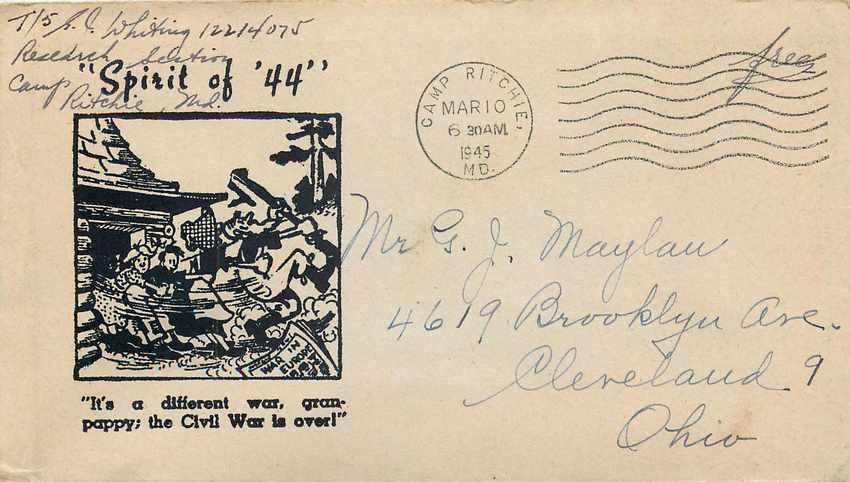 T/5 G. J. Whiting 12214075
Research Section
Camp Ritchie, Md.
"Spirit of '44"
WAR IN
EUROPE
"It's a different war, gran-
pappy; the Civil War is over!"
CAMP RITCHIE,
MAR 10
6 30AM
1945
MD.
free
Mr G. J. Maylau
4619 Brooklyn Ave.
Cleveland 9
Ohio